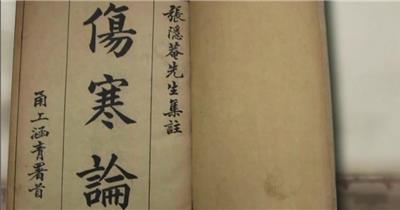 張隱菴先生集註
傷寒論
甬上涵青署首